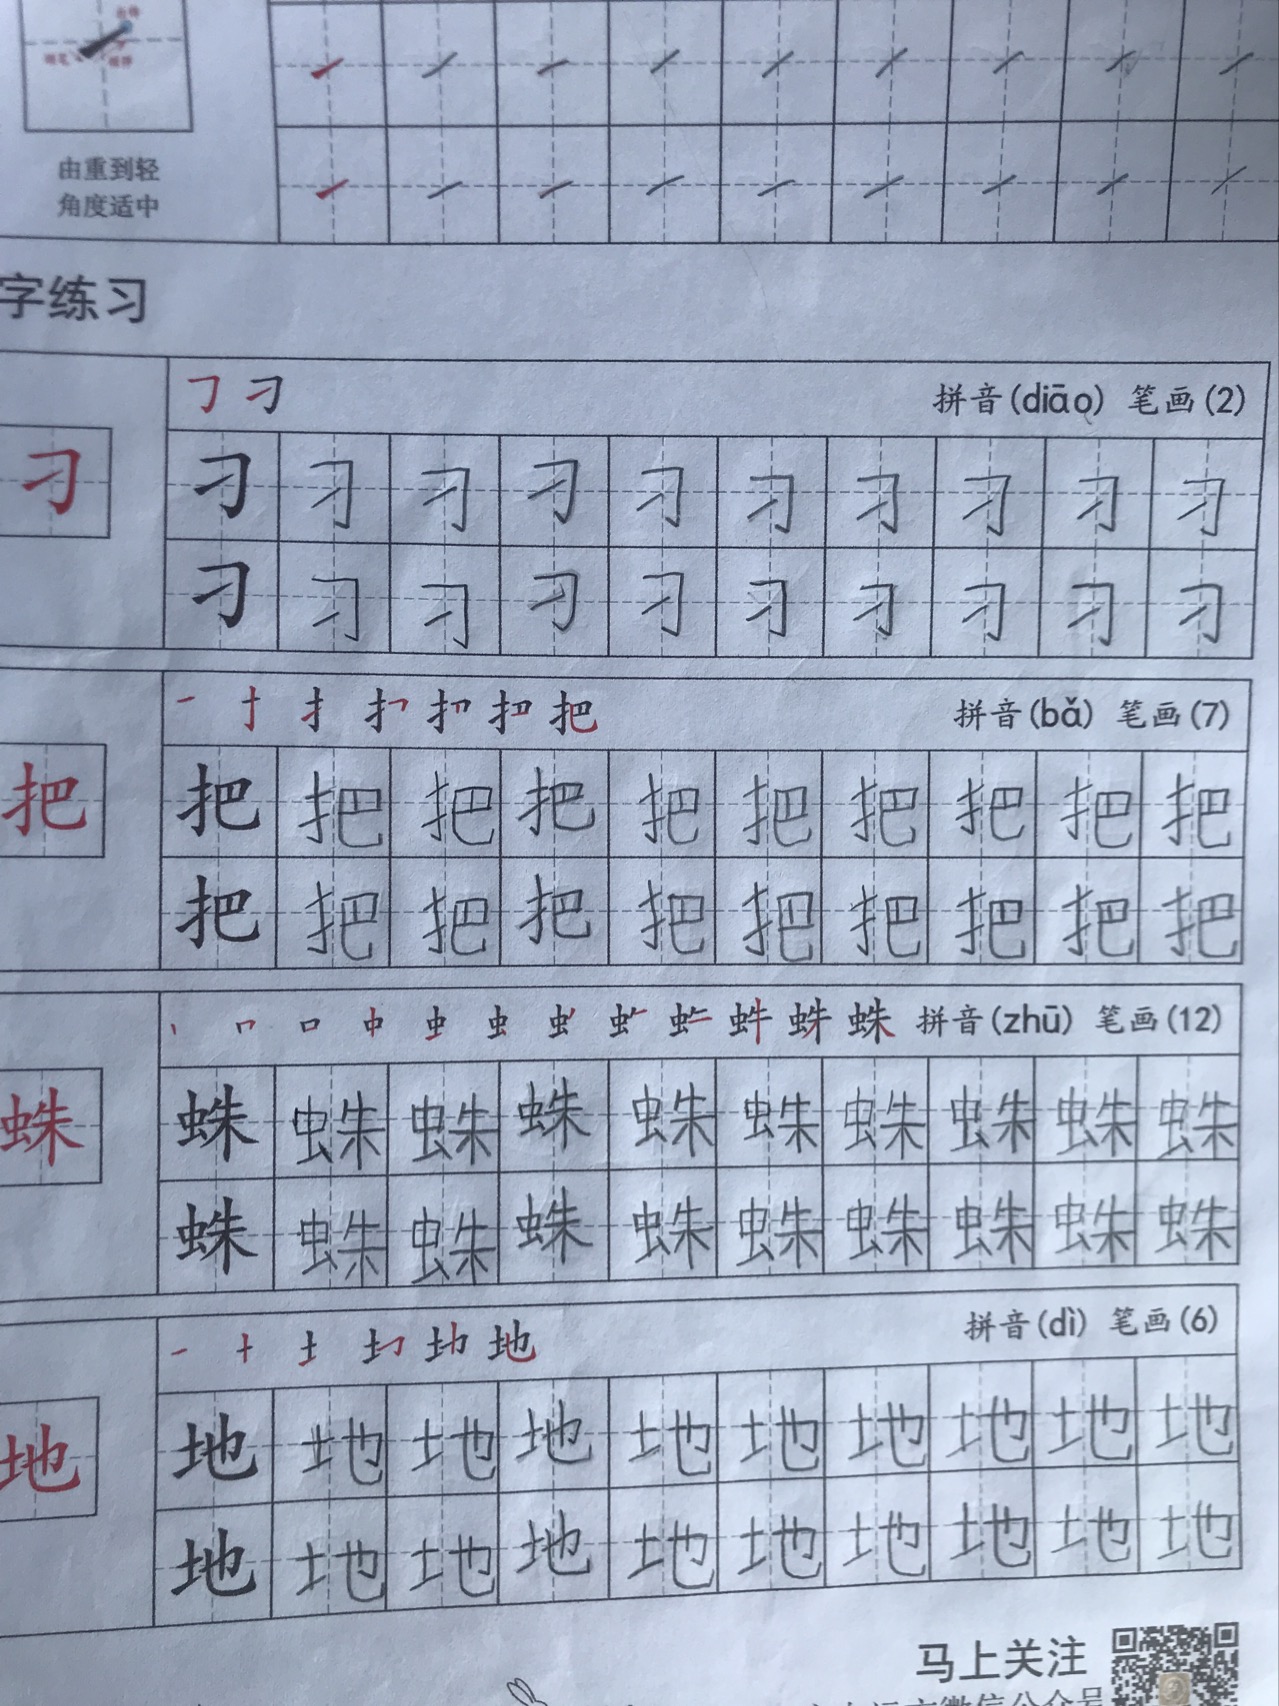 由重到轻
角度适中
字练习
刁 拼音(diāo) 笔画(2)
刁
刁 刁 刁 刁 刁 刁 刁 刁 刁 刁
刁 刁 刁 刁 刁 刁 刁 刁 刁 刁
把 拼音(bǎ) 笔画(7)
把
把 把 把 把 把 把 把 把 把 把
把 把 把 把 把 把 把 把 把 把
蛛 拼音(zhū) 笔画(12)
蛛
蛛 蛛 蛛 蛛 蛛 蛛 蛛 蛛 蛛 蛛
蛛 蛛 蛛 蛛 蛛 蛛 蛛 蛛 蛛 蛛
地 拼音(dì) 笔画(6)
地
地 地 地 地 地 地 地 地 地 地
地 地 地 地 地 地 地 地 地 地
马上关注
微信公众号